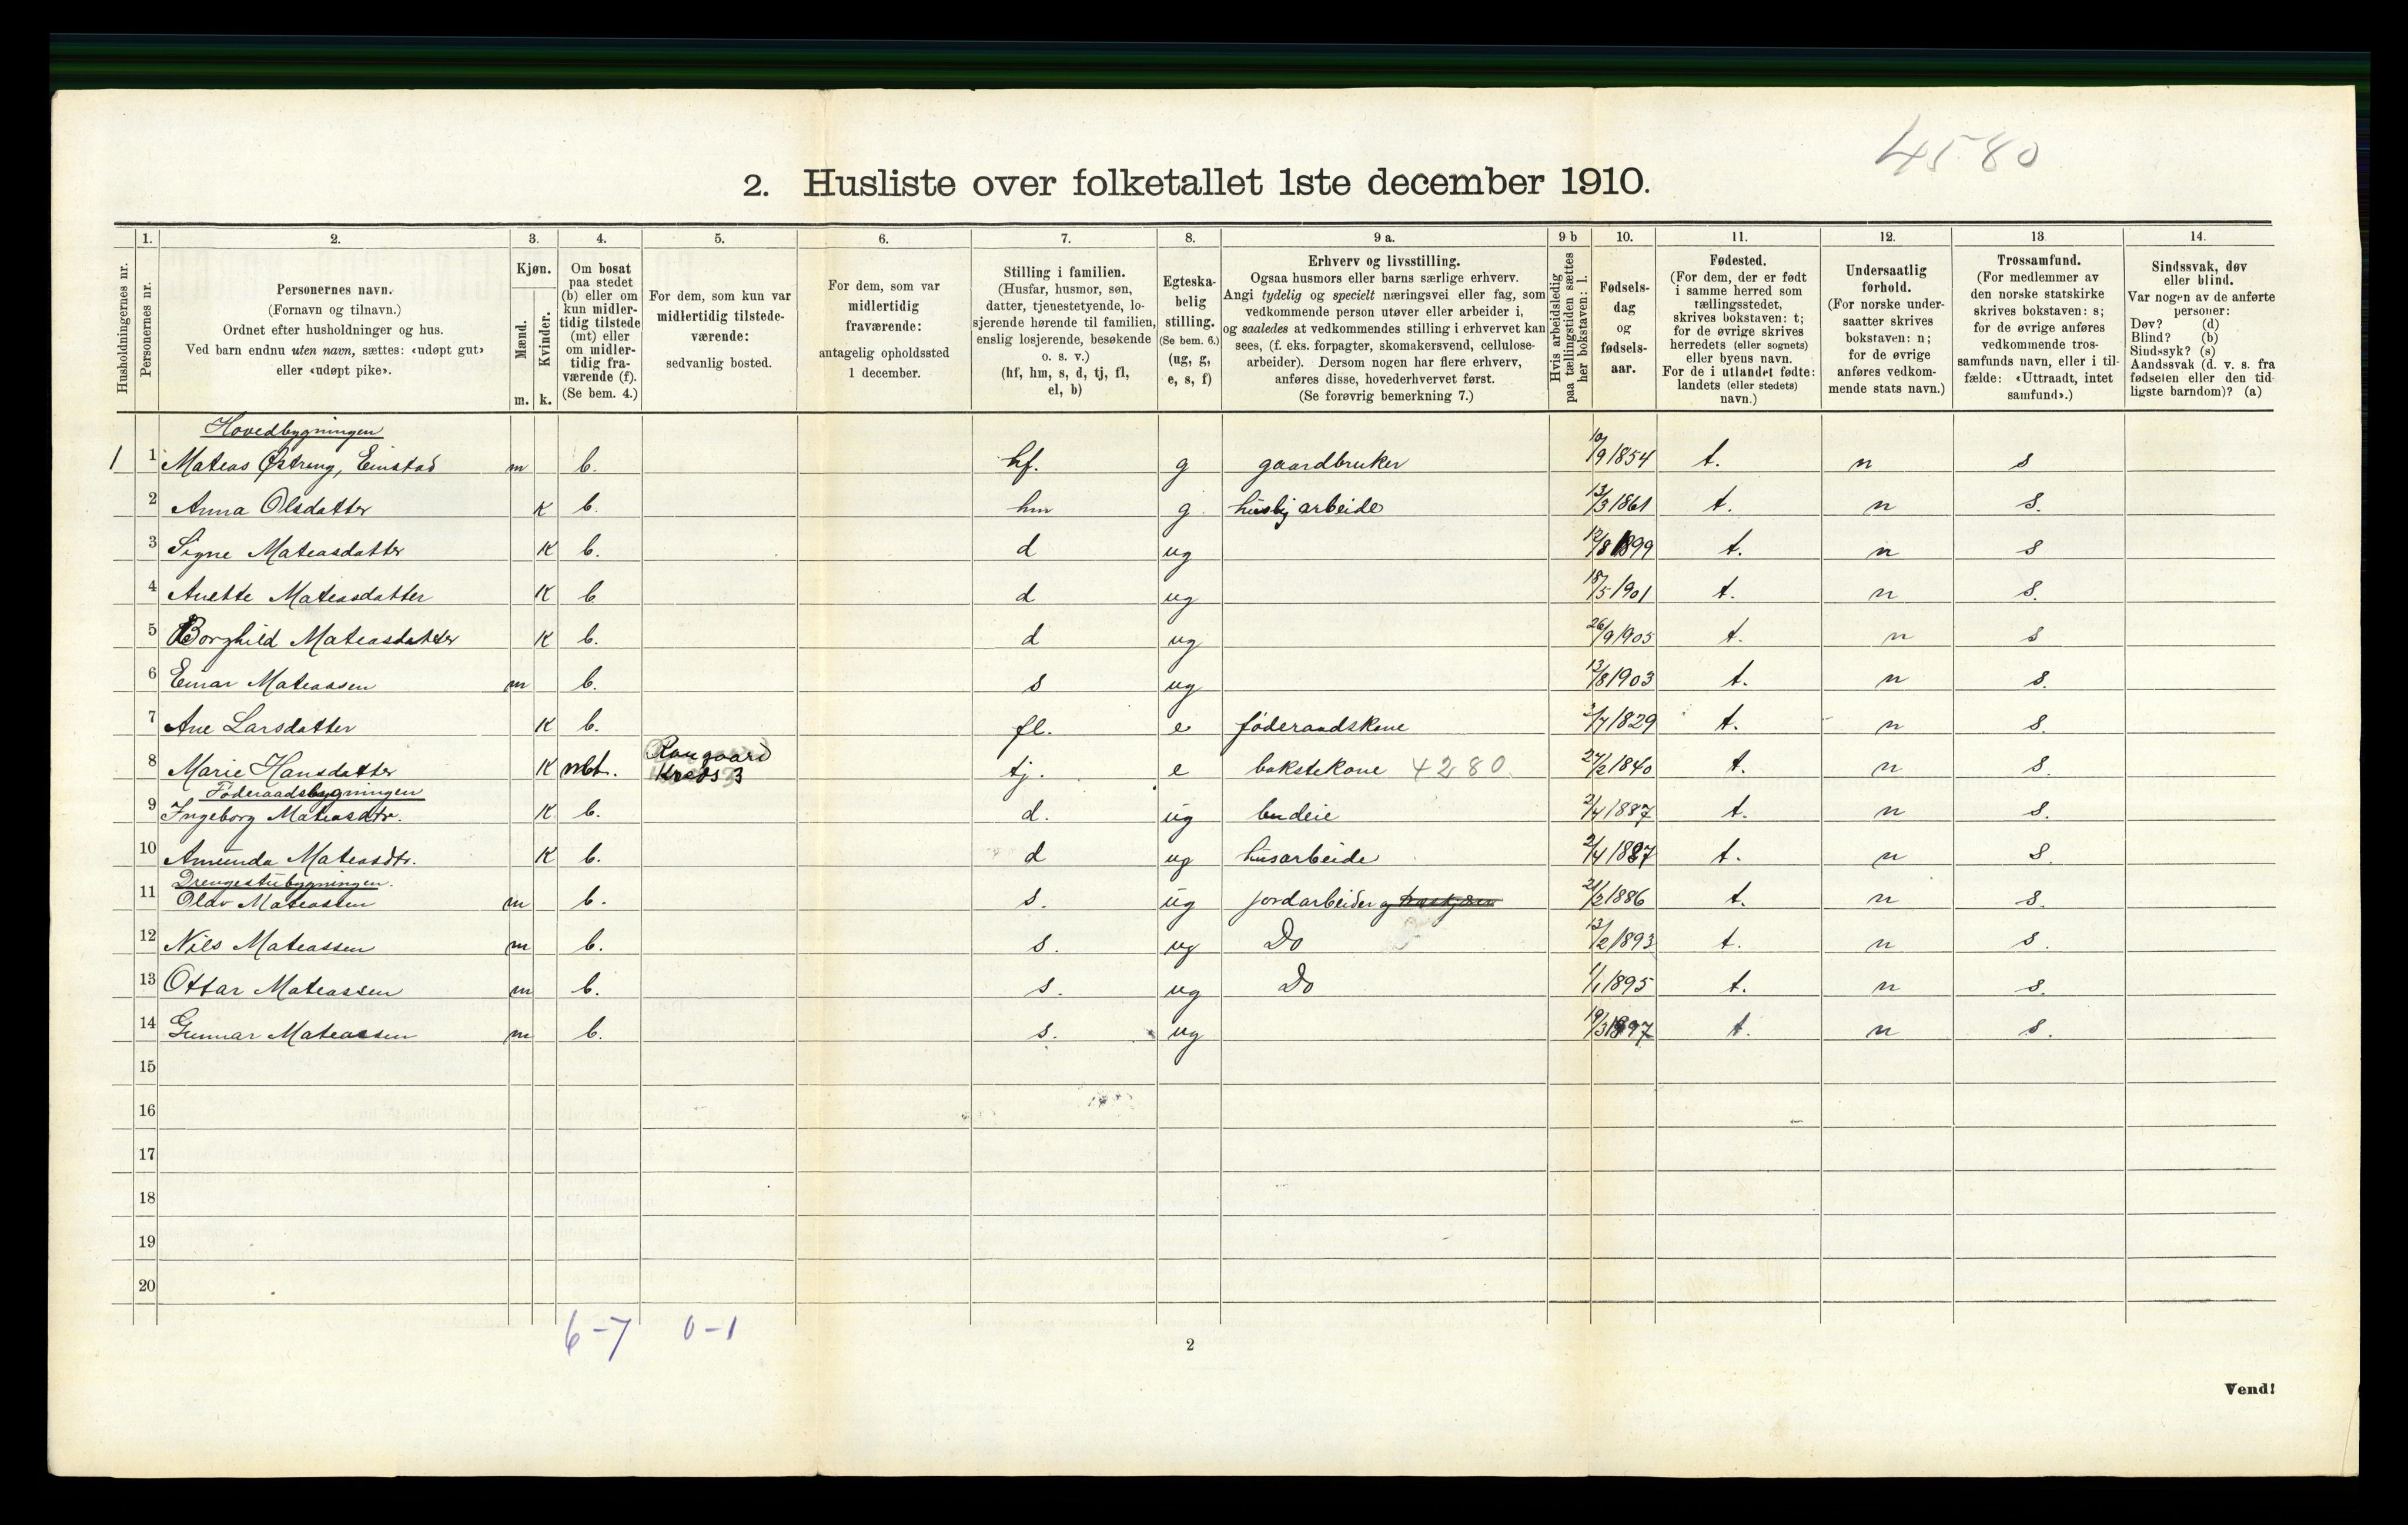 4580
2. Husliste over folketallet 1ste december 1910.
Husholdningernes nr.
1.
Personernes nr.
2.
Personernes navn.
(Fornavn og tilnavn.)
Ordnet efter husholdninger og hus.
Ved barn endnu uten navn, sættes: «udøpt gut»
eller «udøpt pike».
3.
Kjøn.
Mænd.
Kvinder.
m. k.
4.
Om bosat
paa stedet
(b) eller om
kun midler-
tidig tilstede
(mt) eller
om midler-
tidig fra-
værende (f).
(Se bem. 4.)
5.
For dem, som kun var
midlertidig tilstede-
værende:
sedvanlig bosted.
6.
For dem, som var
midlertidig
fraværende:
antagelig opholdssted
1 december.
7.
Stilling i familien.
(Husfar, husmor, søn,
datter, tjenestetyende, lo-
sjerende hørende til familien,
enslig losjerende, besøkende
o. s. v.)
(hf, hm, s, d, tj, fl,
el, b)
8.
Egteska-
belig
stilling.
(Se bem. 6.)
(ug, g,
e, s, f)
9 a.
Erhverv og livsstilling.
Ogsaa husmors eller barns særlige erhverv.
Angi tydelig og specielt næringsvei eller fag, som
vedkommende person utøver eller arbeider i,
og saaledes at vedkommendes stilling i erhvervet kan
sees, (f. eks. forpagter, skomakersvend, cellulose-
arbeider). Dersom nogen har flere erhverv,
anføres disse, hovederhvervet først.
(Se forøvrig bemerkning 7.)
9 b
Hvis arbeidsledig
paa tællingstiden sættes
her bokstaven: l.
10.
Fødsels-
dag
og
fødsels-
aar.
11.
Fødested.
(For dem, der er født
i samme herred som
tællingsstedet,
skrives bokstaven: t;
for de øvrige skrives
herredets (eller sognets)
eller byens navn.
For de i utlandet fødte:
landets (eller stedets)
navn.)
12.
Undersaatlig
forhold.
(For norske under-
saatter skrives
bokstaven: n;
for de øvrige
anføres vedkom-
mende stats navn.)
13
Trossamfund.
(For medlemmer av
den norske statskirke
skrives bokstaven: s;
for de øvrige anføres
vedkommende tros-
samfunds navn, eller i til-
fælde: «Uttraadt, intet
samfund».)
14.
Sindssvak, døv
eller blind.
Var nogen av de anførte
personer:
Døv? (d)
Blind? (b)
Sindssyk? (s)
Aandssvak (d. v. s. fra
fødselen eller den tid-
ligste barndom)? (a)
Hovedbygningen
1 1 Mateas Østreng, Einstad m b. hf. g gaardbruker 10/9 1854 t. n s
2 Anna Olsdatter K b. hm g huslig arbeide 13/3 1861 t. n s.
3 Signe Mateasdatter K b. d ug 12/8 1899 t. n s
4 Anette Mateasdatter K b d ug 18/5 1901 t. n s.
5 Borghild Mateasdatter K b. d ug 26/9 1905 t. n s
6 Einar Mateassen m b. s ug 13/8 1903 t. n s.
7 Ane Larsdatter K b. fl. e føderaadskone /7 1829 t. n s.
8 Marie Hansdatter K mt. Kreds 3 tj. e bakstekone 4280 27/2 1840 t. n s.
Føderaadsbygningen
9 Ingeborg Mateasdtr. K b. d. ug budeie 2/4 1887 t. n s.
10 Amunda Mateasdtr. K b. d ug husarbeide 2/4 1887 t. n s.
Drengestubygningen.
11 Olav Mateassen m b. s. ug jordarbeider og 21/2 1886 t. n s.
12 Nils Mateassen m b. s. ug Do 13/2 1893 t. n s.
13 Ottar Mateassen m b. s. ug Do 1/1 1895 t. n s.
14 Gunnar Mateassen m b. s. ug 19/3 1897 t. n s.
15
16
17
18
19
20
6-7 0-1
2
Vend!